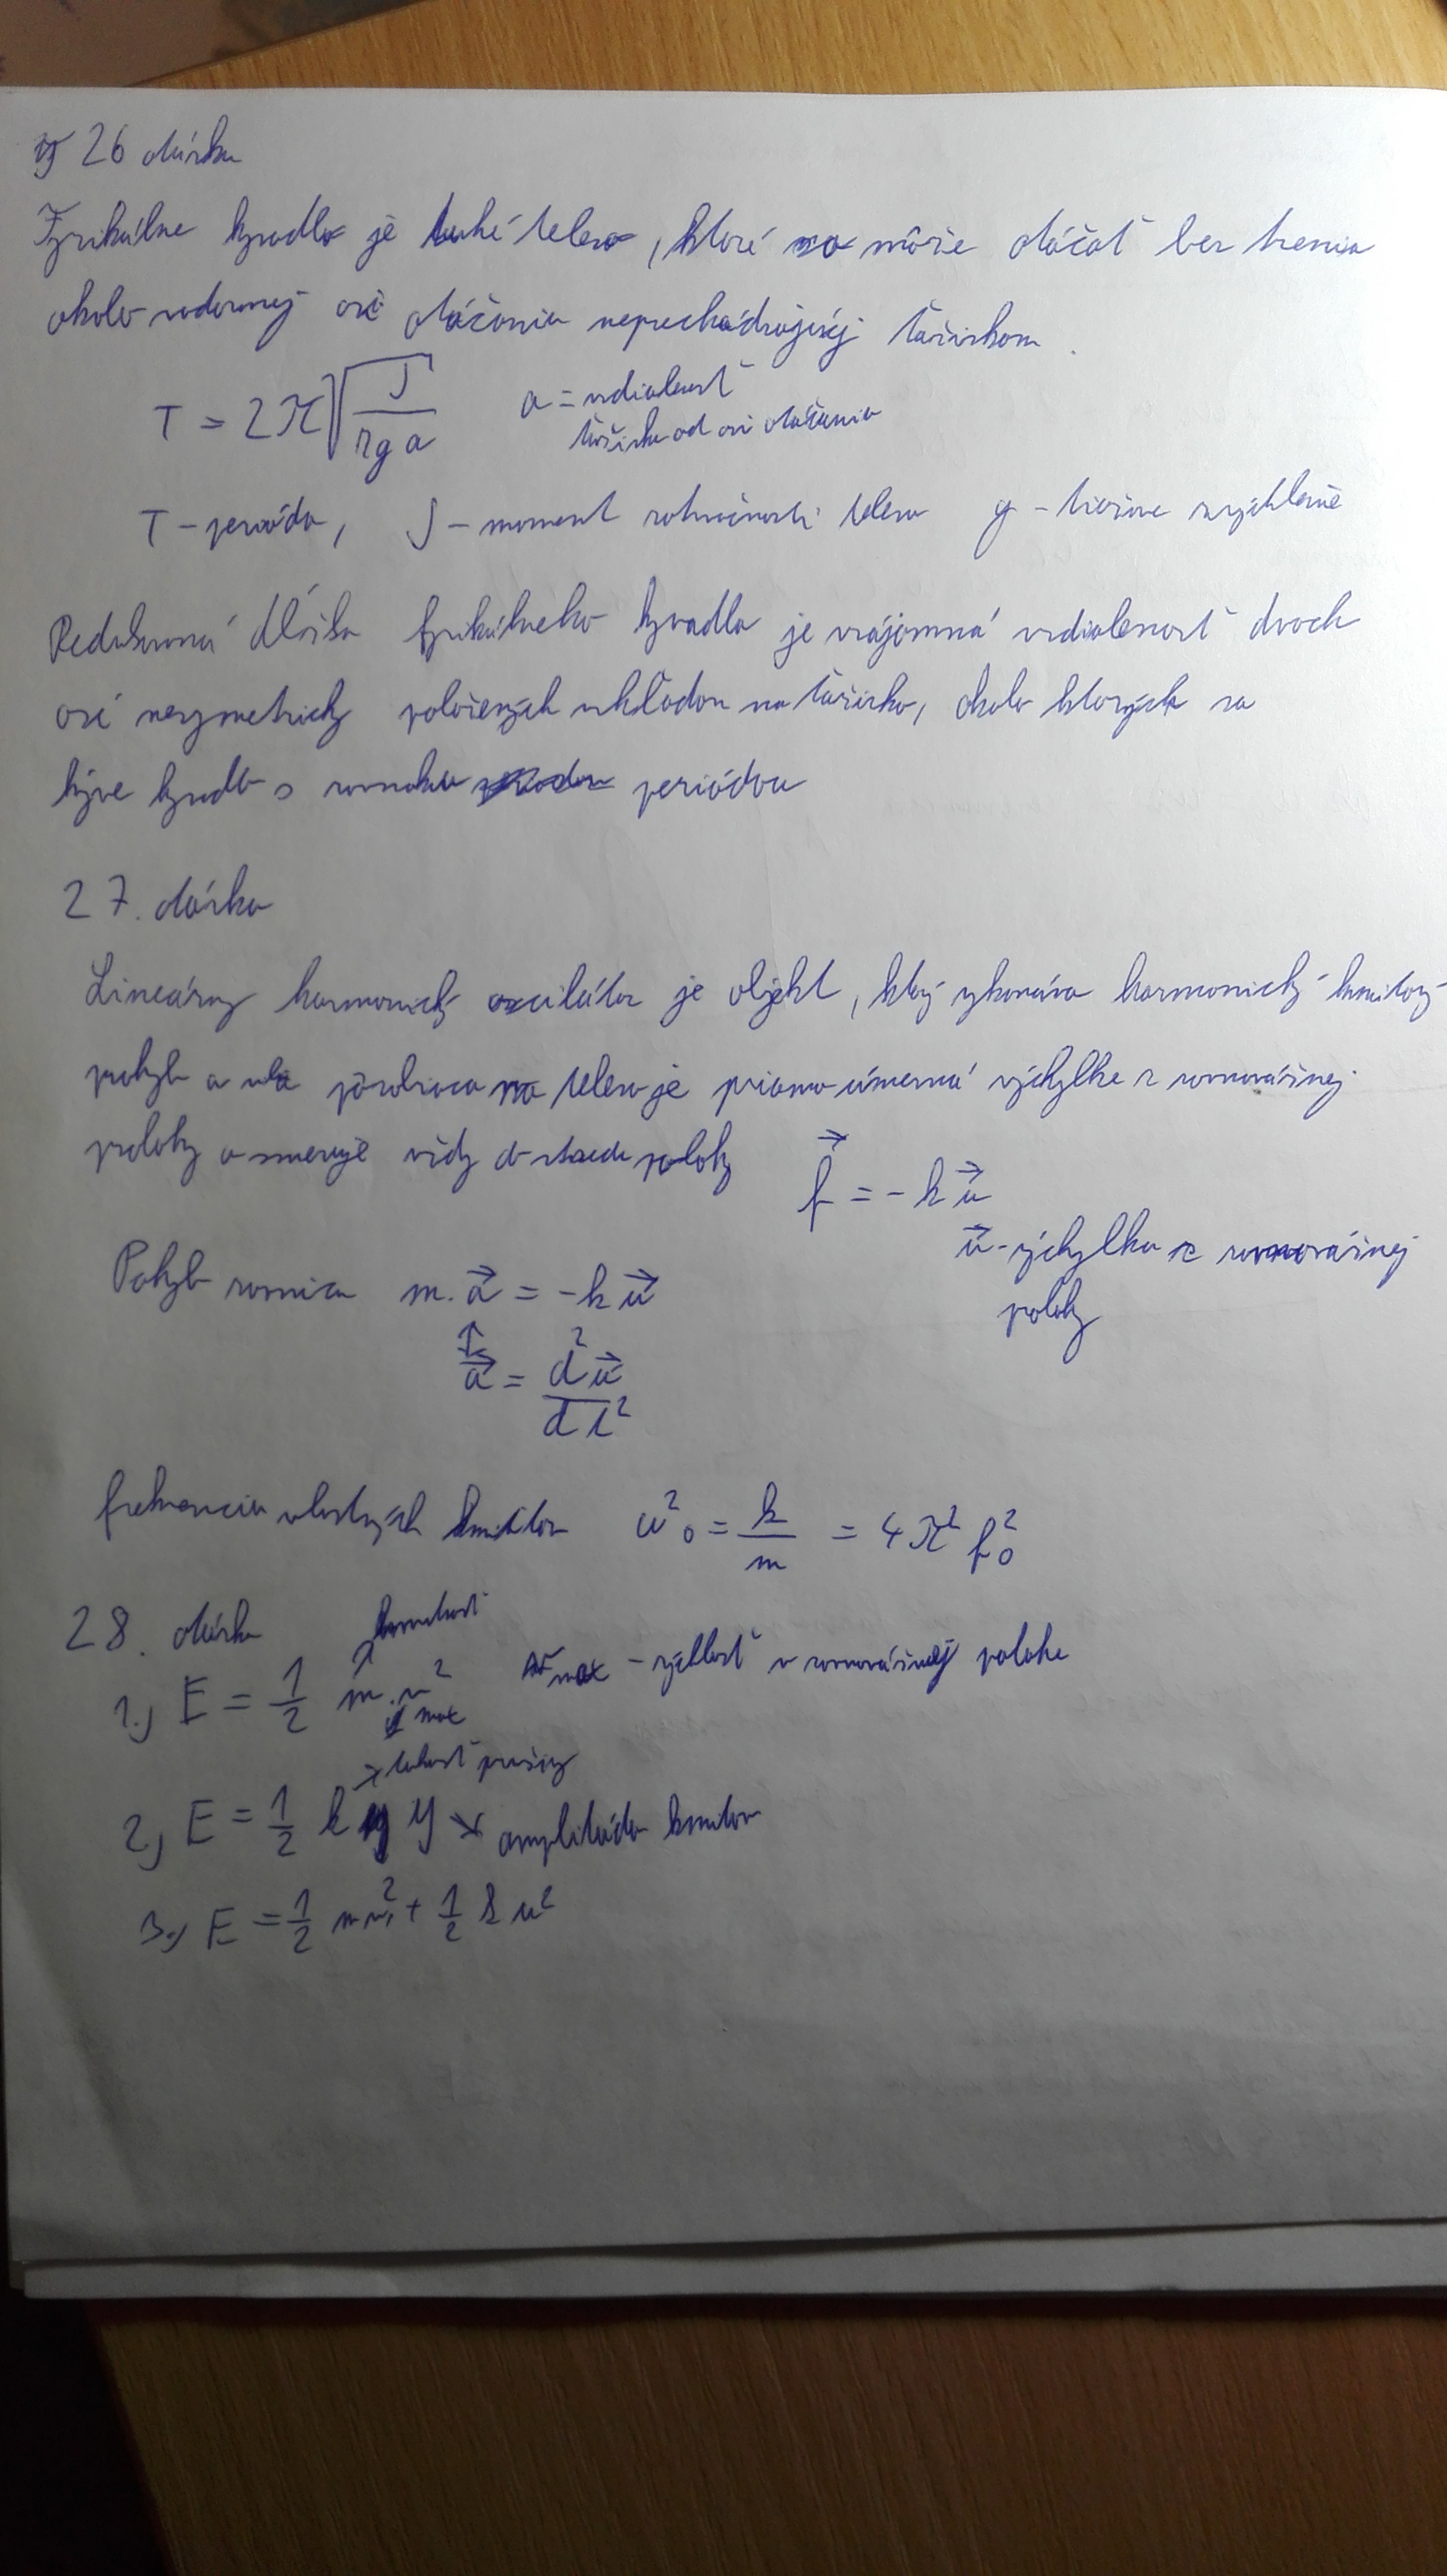 26 otázka
Fyzikálne kyvadlo je tuhé teleso, ktoré sa môže otáčať bez trenia
okolo vodorovnej osi otáčania neprechádzajúcej ťažiskom.
T = 2π√(J/mga) a = vzdialenosť
ťažiska od osi otáčania
T - perióda, J - moment zotrvačnosti telesa g - tiažové zrýchlenie
Redukovaná dĺžka fyzikálneho kyvadla je vzájomná vzdialenosť dvoch
osí nesymetricky položených vzhľadom na ťažisko, okolo ktorých sa
kýve kyvadlo s rovnakou periódou
27. otázka
Lineárny harmonický oscilátor je objekt, ktorý vykonáva harmonický kmitavý
pohyb a sila pôsobiaca na teleso je priamo úmerná výchylke z rovnovážnej
polohy a smeruje vždy do stredu polohy
f⃗ = -k u⃗
u⃗ - výchylka z rovnovážnej
polohy
Pohyb rovnica m.a⃗ = -k u⃗
a⃗ = d²u⃗/dt²
frekvencia vlastných kmitov ω²₀ = k/m = 4π² f₀²
28. otázka
hmotnosť
1.) E = 1/2 m.v²max vmax - rýchlosť v rovnovážnej polohe
tuhosť pružiny
2.) E = 1/2 k y amplitúda kmitov
3.) E = 1/2 mv² + 1/2 k u²